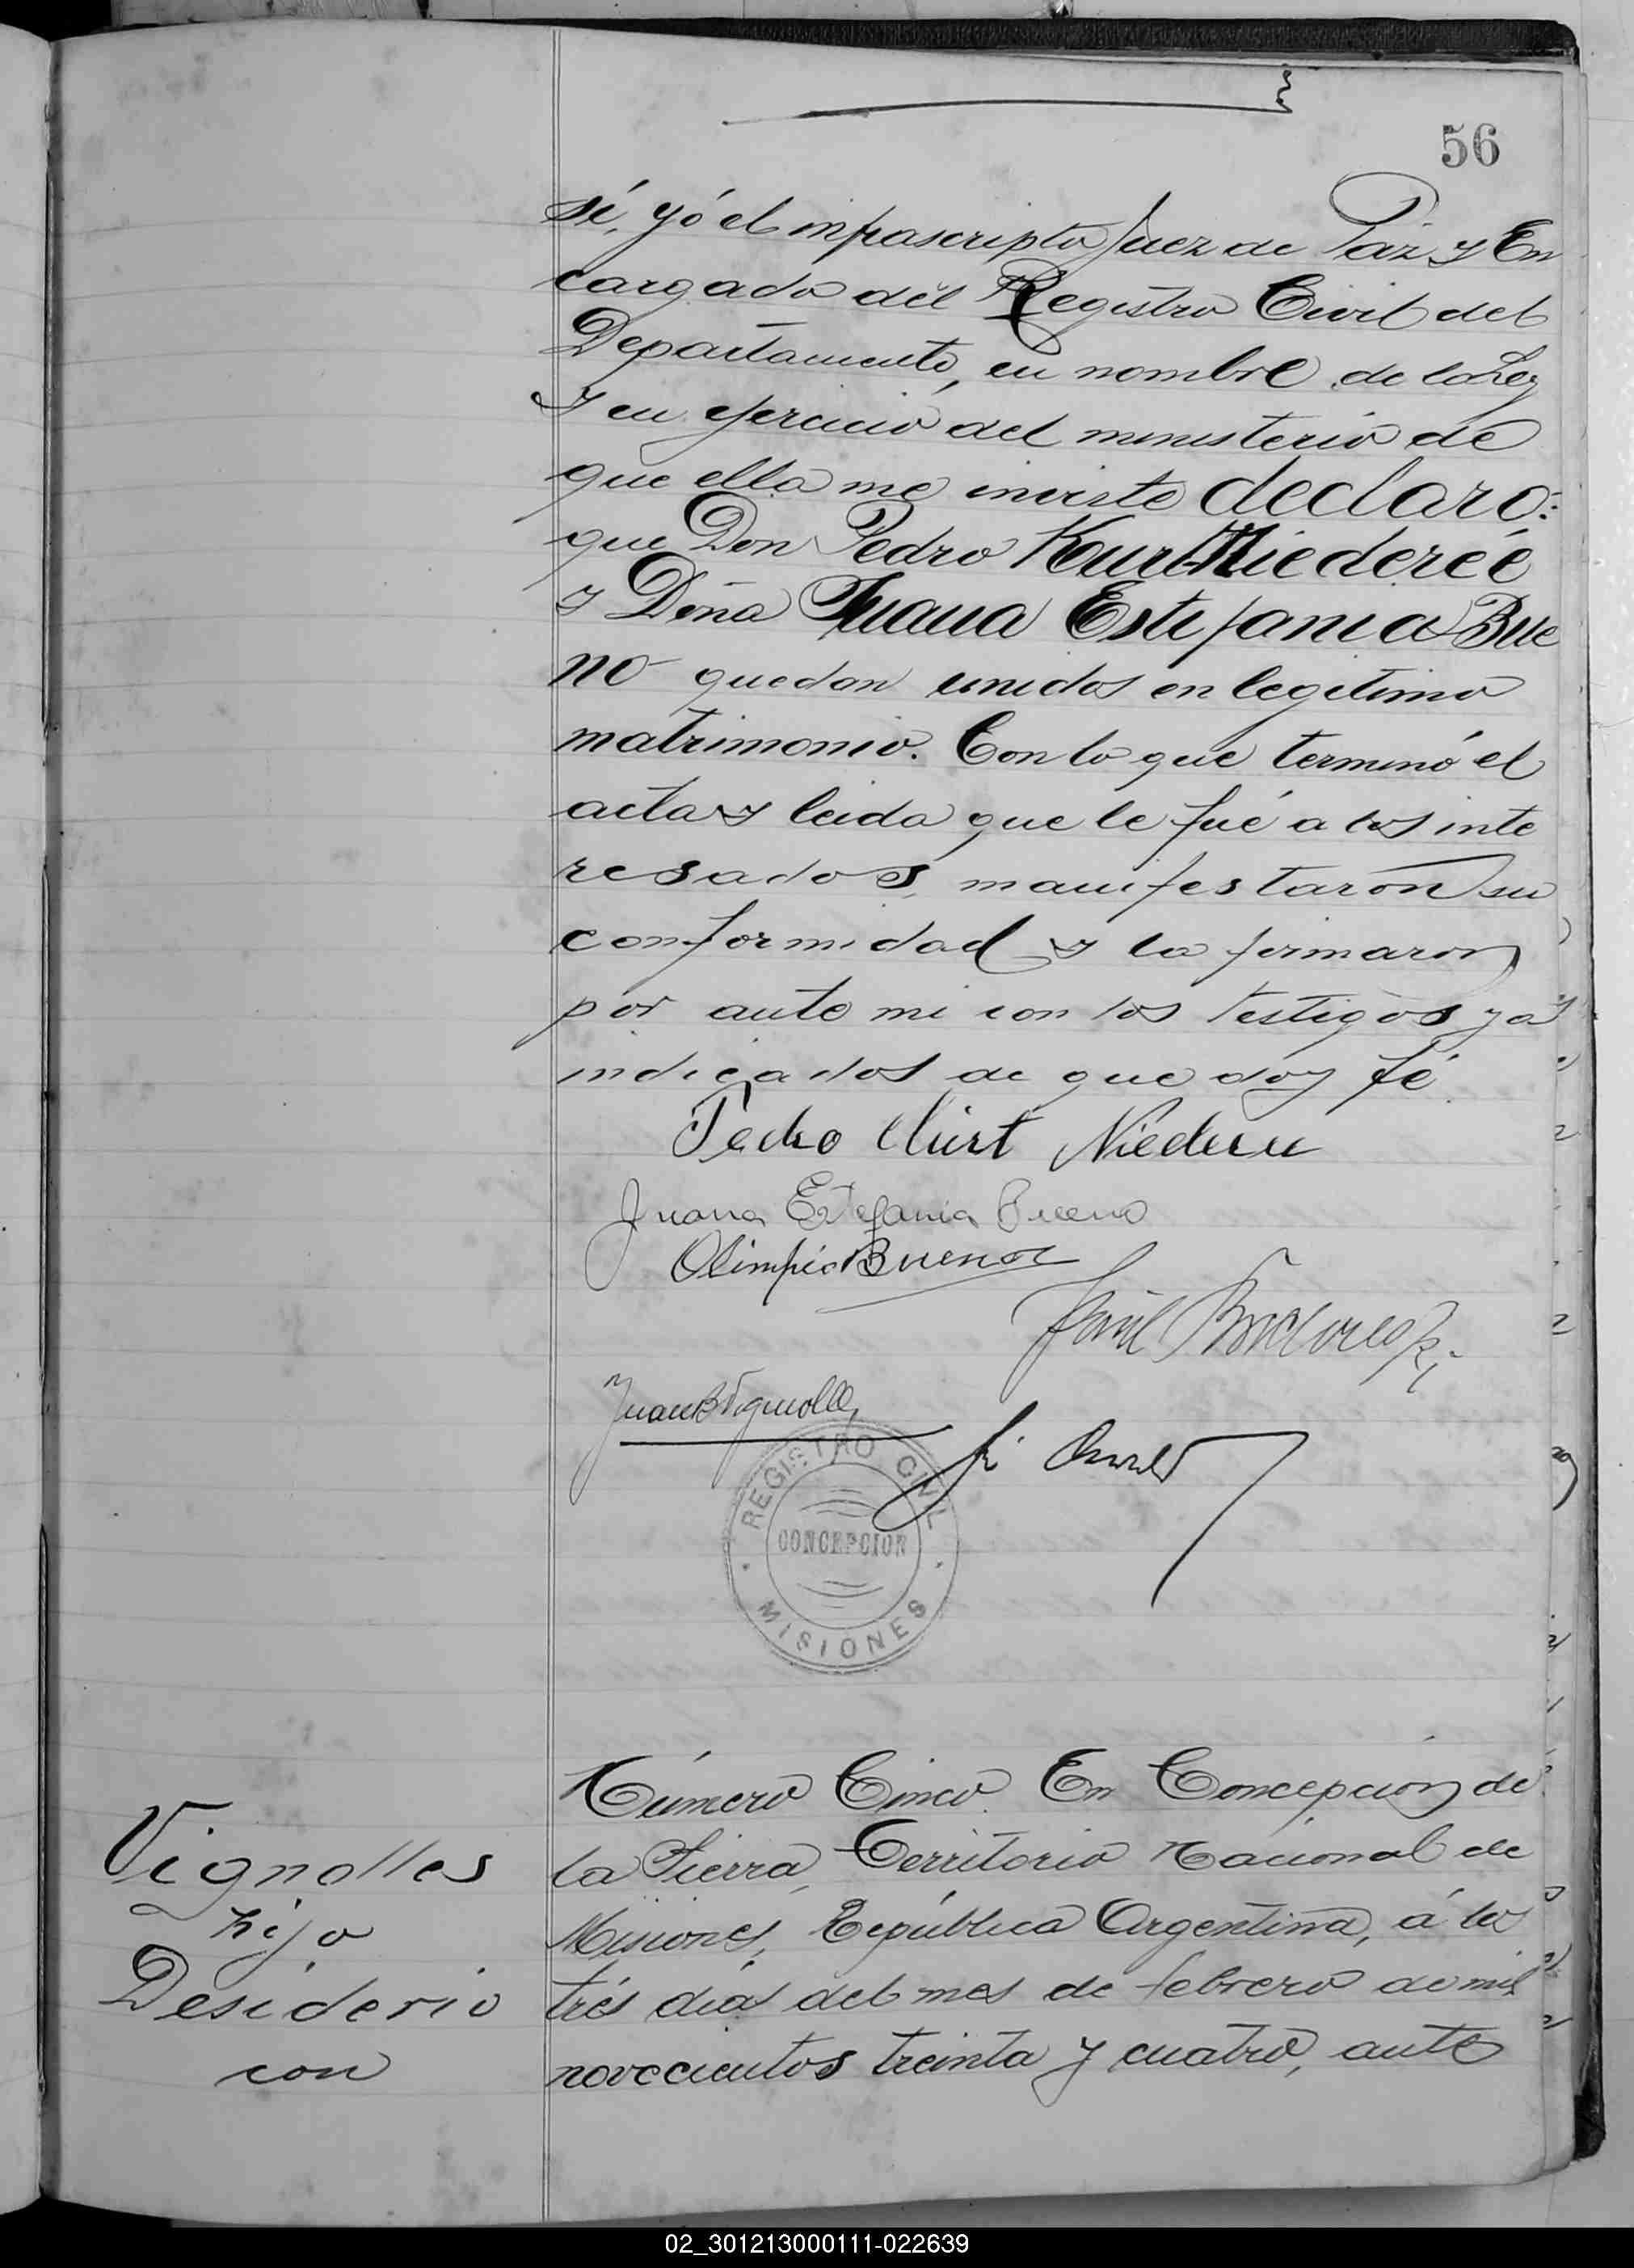 56
sí, yó el infrascripto Juez de Paz y En
cargado del Registro Civil del
Departamento, en nombre de la Ley
y en ejercicio del ministerio de
que ella me inviste declaro:
que Don Pedro Kurt Niedereé
y Doña Juana Estefania Bue
no quedan unidos en legitimo
matrimonio. Con lo que terminó el
acta y leida que le fué a los inte
resados, manifestaron su
conformidad y la firmaron
por ante mi con los testigos ya
indicados de que doy fé.
Pedro Kurt Niederee
Juana Estefania Bueno
Olimpio Bueno
Juan B Vignolles
REGISTRO CIVIL
CONCEPCION
MISIONES
Vignolles
hijo
Desiderio
con
Número Cinco. En Concepción de
la Sierra, Territorio Nacional de
Misiones, República Argentina, á los
trés días del mes de febrero de mil
novecientos treinta y cuatro, ante
02_301213000111-022639